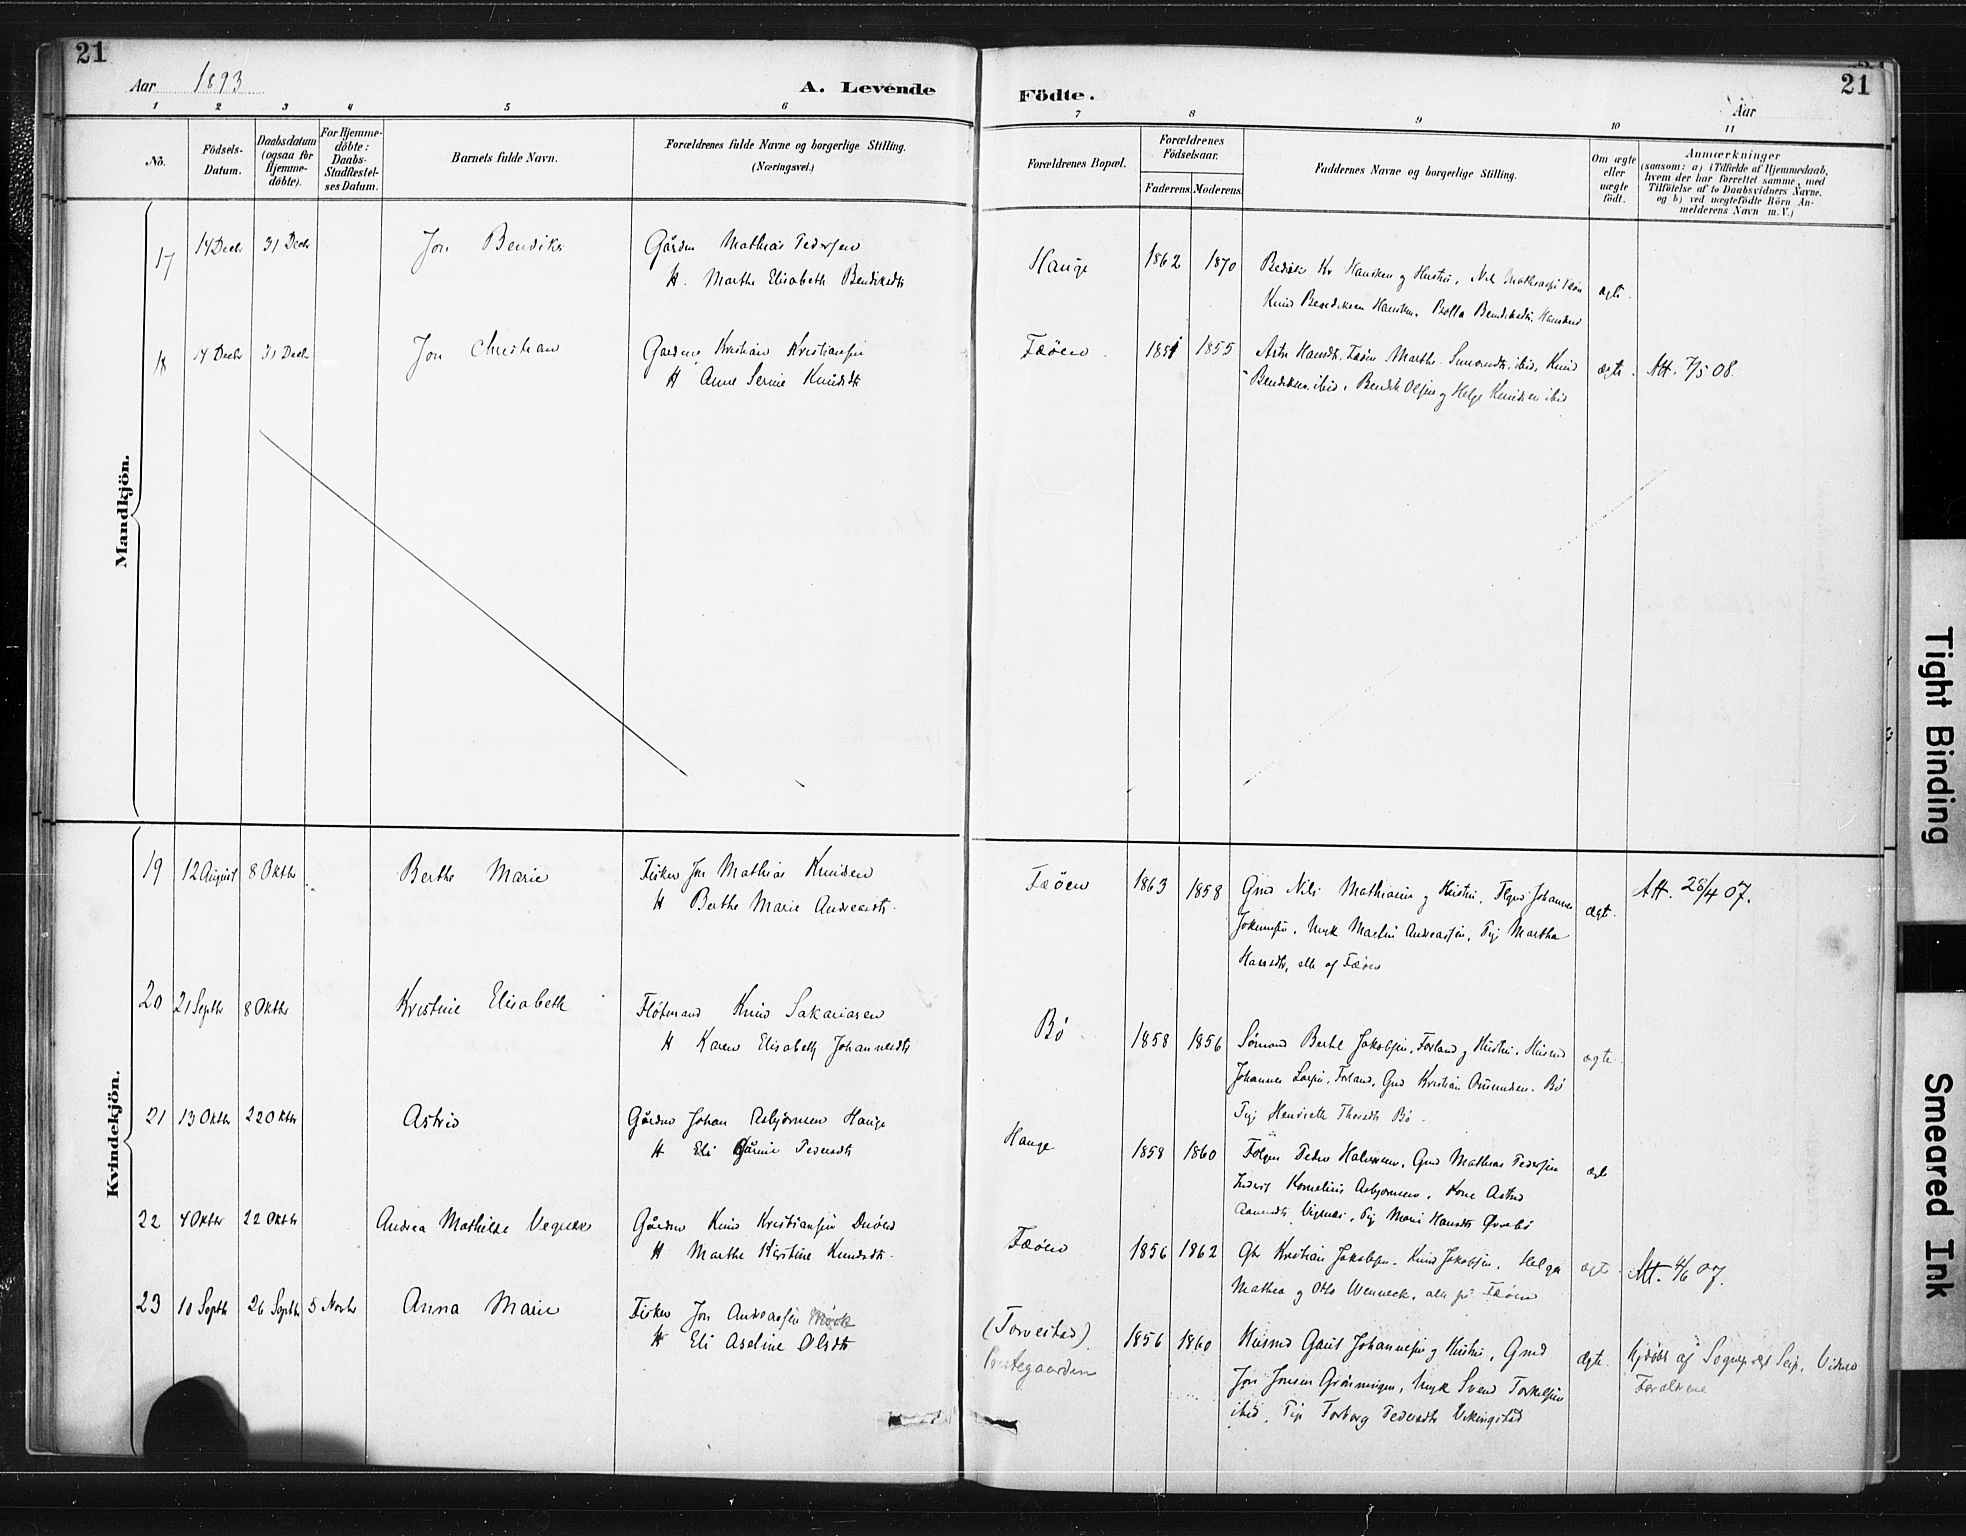 21
Aar 1893
A. Levende
Födte.
Aar
21
1 2 3 4 5 6 7 8 9 10 11
No.
Födsels-Datum.
Daabsdatum (ogsaa for Hjemme-döbte).
For Hjemme-döbte: Daabs-Stadfæstel-ses Datum.
Barnets fulde Navn.
Forældrenes fulde Navne og borgerlige Stilling. (Næringsvei.)
Forældrenes Bopæl.
Forældrenes Födselsaar.
Faderens. Moderens.
Faddernes Navne og borgerlige Stilling.
Om ægte eller uægte födt.
Anmærkninger
(saasom: a) i Tilfælde af Hjemmedaab,
hvem der har forrettet samme, med
Tilföielse af to Daabsvidners Navne,
og b) ved uægtefödte Börn An-
melderens Navn m. V.)
Mandkjön.
17 14 Decbr 31 Decbr Jon Bendiks Gårdm Mathias Pedersen
H. Marthe Elisabeth Bendiksdtr
Hauge 1862 1870 Hansken og Hustru,
Knud Bendiksen Hansken, Bendiksdtr. Hansken
ægte.
18 14 Decbr 31 Decbr Jon Christian Gaardm Kristian Kristiansen
H Anne Serine Knudsdtr
Fæöen. 1851 1855 Hansdtr. Fæöen Marthe Simonsdtr. ibid, Knud
Bendiksen ibid, Bendik Olsen og Helge Knudsen ibid
ægte. Att. 7/5 08.
Kvindekjön.
19 12 August 8 Oktbr Berthe Marie Fisker Jon Mathias Knudsen
H Berthe Marie Andreasdtr.
Fæöen 1863 1858 Gmd Nils Mathiasen og Hustru, Johannes
Jokumsen, Ungk Martin Andreassen, Pig Martha
Hansdtr, alle af Fæöen
ægte. Att. 28/4 07.
20 21 Septbr 8 Oktbr Kristine Elisabeth Flötmand Knud Sakariasen
H Karen Elisabeth Johannesdtr
Bö 1858 1856 Sömand Bertel Jakobsen, Forland og Hustru, Husmd
Johannes Larsen, Forland, Gmd Kristian Amundsen. Bö
Pig Henriette Thorsdtr Bö.
ægte.
21 13 Oktbr 22 Oktbr Astrid Gårdm Johan Asbjörnsen Hauge
H Eli Gurine Pedersdtr
Hauge 1858 1860 Peder Halvorsen, Gmd Mathias Pedersen
Kornelius Asbjörnsen, Kone Astrid
Vignæs, Pig Marie Hansdtr Övrebö
ægte
22 4 Oktbr 22 Oktbr Andrea Mathilde Gårdm Knud Kristiansen
H Marthe Kirstine Knudsdtr.
Fæöen 1856 1862 Kristian Jakobsen. Knud Jakobsen, Helga
Mathea og Otto Wenneck, alle på Fæöen
ægte. Att. 4/6 07.
23 10 Septbr 26 Septbr 5 Novbr Anna Marie Fisker Jon Andreassen
H Eli Aseline Olsdtr
(Torvestad) Prestegaarden 1856 1860 Husmd Gaut Johannesen og Hustru, Gmd
Jon Jonsen Grönningen, Ungk Svend Torkelsen
ibid, Pige Torborg Pedersdtr Vikingstad
ægte. Hjdöbt af Sognepræst Seip, Vidner
Forældrene
Tight Binding
Smeared Ink